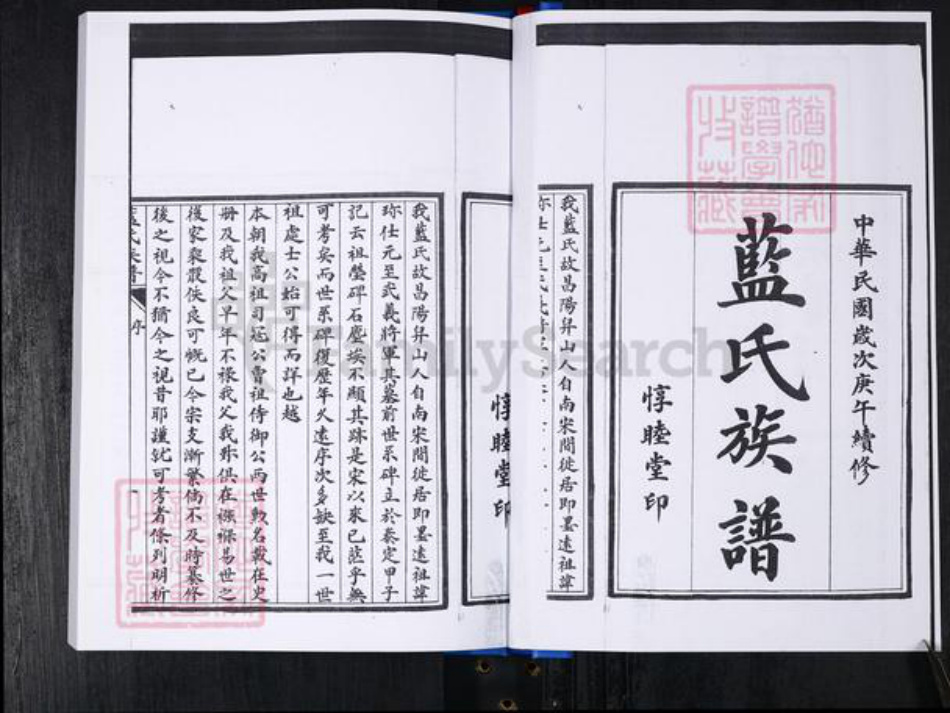 中華民國歲次庚午續修
藍氏族譜
惇睦堂印
我藍氏故昌陽昇山人自南宋間徙居即墨遠祖諱
惇睦堂印
我藍氏故昌陽昇山人自南宋間徙居即墨遠祖諱
珎仕元至武義將軍其墓前世系碑立於泰定甲子
記云祖塋碑石塵埃不顯其跡是宋以來已茫乎無
可考矣而世系碑復歷年久遠序次多缺至我一世
祖處士公始可得而詳也越
本朝我高祖司冠公曾祖侍御公兩世勲名載在史
册及我祖父早年不祿我父我弟俱在襁褓易世之
後家乘散佚良可慨已今宗支漸繁倘不及時纂修
後之視今不猶今之視昔耶謹就可考者條列明析
藍氏族譜 序
FamilySearch